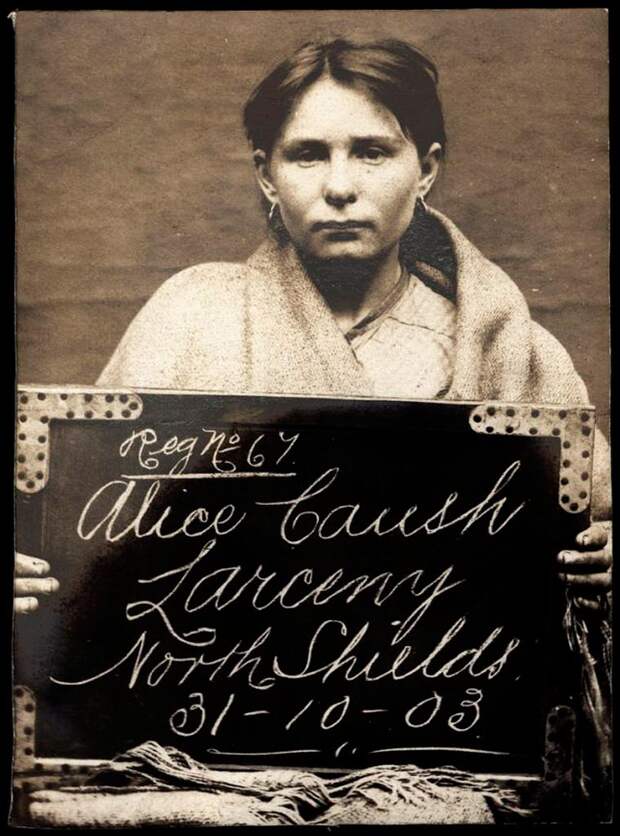 Reg No 67
Alice Caush
Larceny
North Shields.
31-10-03